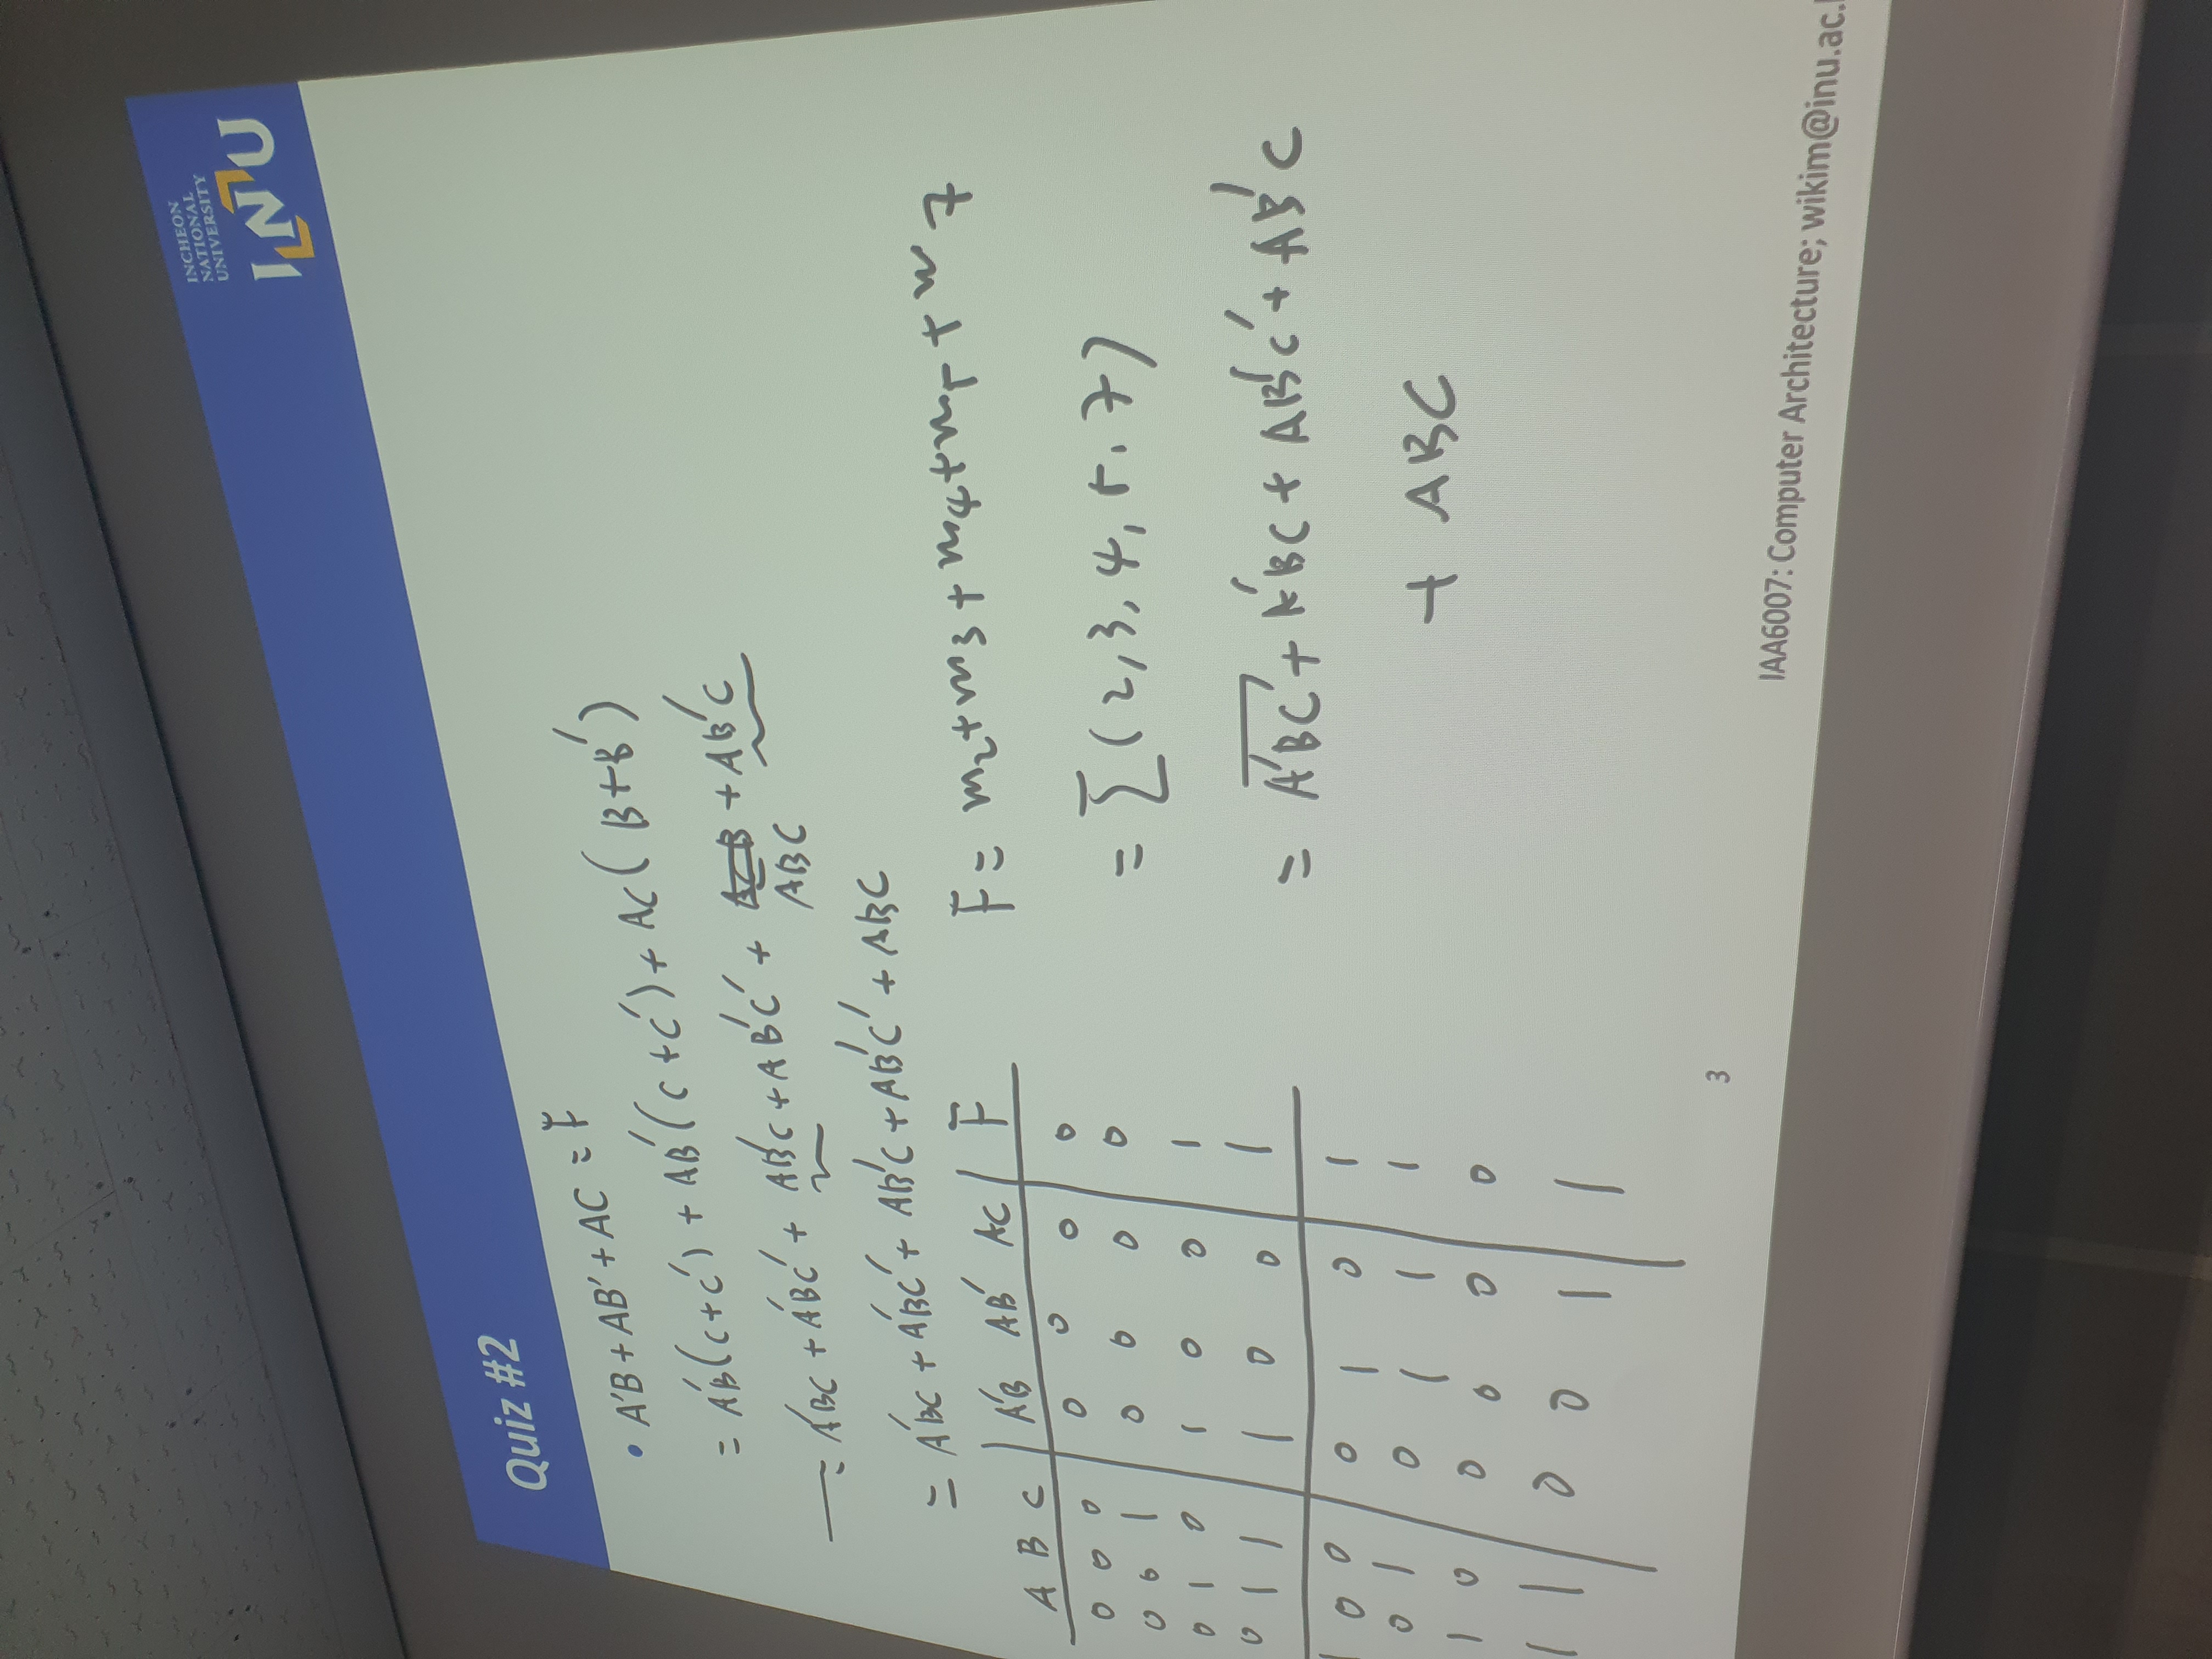 INCHEON
NATIONAL
UNIVERSITY
INU
Quiz #2
• A'B + AB' + AC = F
= A'B(C+C') + AB'(C+C') + AC(B+B')
= A'BC + A'BC' + AB'C + AB'C' + ACB + AB'C
ABC
= A'BC + A'BC' + AB'C + AB'C' + ABC
A B C A'B AB' AC F
0 0 0 0 0 0 0
0 0 1 0 0 0 0
0 1 0 1 0 0 1
0 1 1 1 0 0 1
1 0 0 0 1 0 1
0 1 0 1 1 1
1 0 0 0 0 0
1 1 0 0 1 1
F = m2 + m3 + m4 + m5 + m7
= Σ(2,3,4,5,7)
= A'BC' + A'BC + AB'C' + AB'C
+ ABC
3
IAA6007: Computer Architecture; wikim@inu.ac.